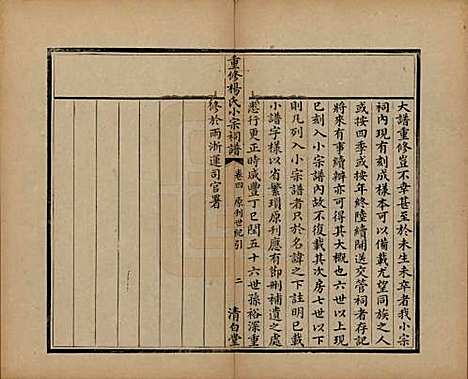 大譜重修豈不幸甚至於未生未卒者我小宗
祠內現有刻成樣本可以備載尤望同族之人
或按四季或按年終陸續開送交管祠者存記
將來有事續辦亦可得其大概也六世以上
已刻入小宗譜內故不復載其次房七世以下
則凡列入小宗譜者只於名諱之下註明已載
小譜字樣以省繁瑣原刊應有節刪補遺之處
悉行更正時咸豐丁巳閏五十六世孫裕深重
修於兩浙運司官署
重修楊氏小宗祠譜 卷四 原刊世紀引 二 清白堂